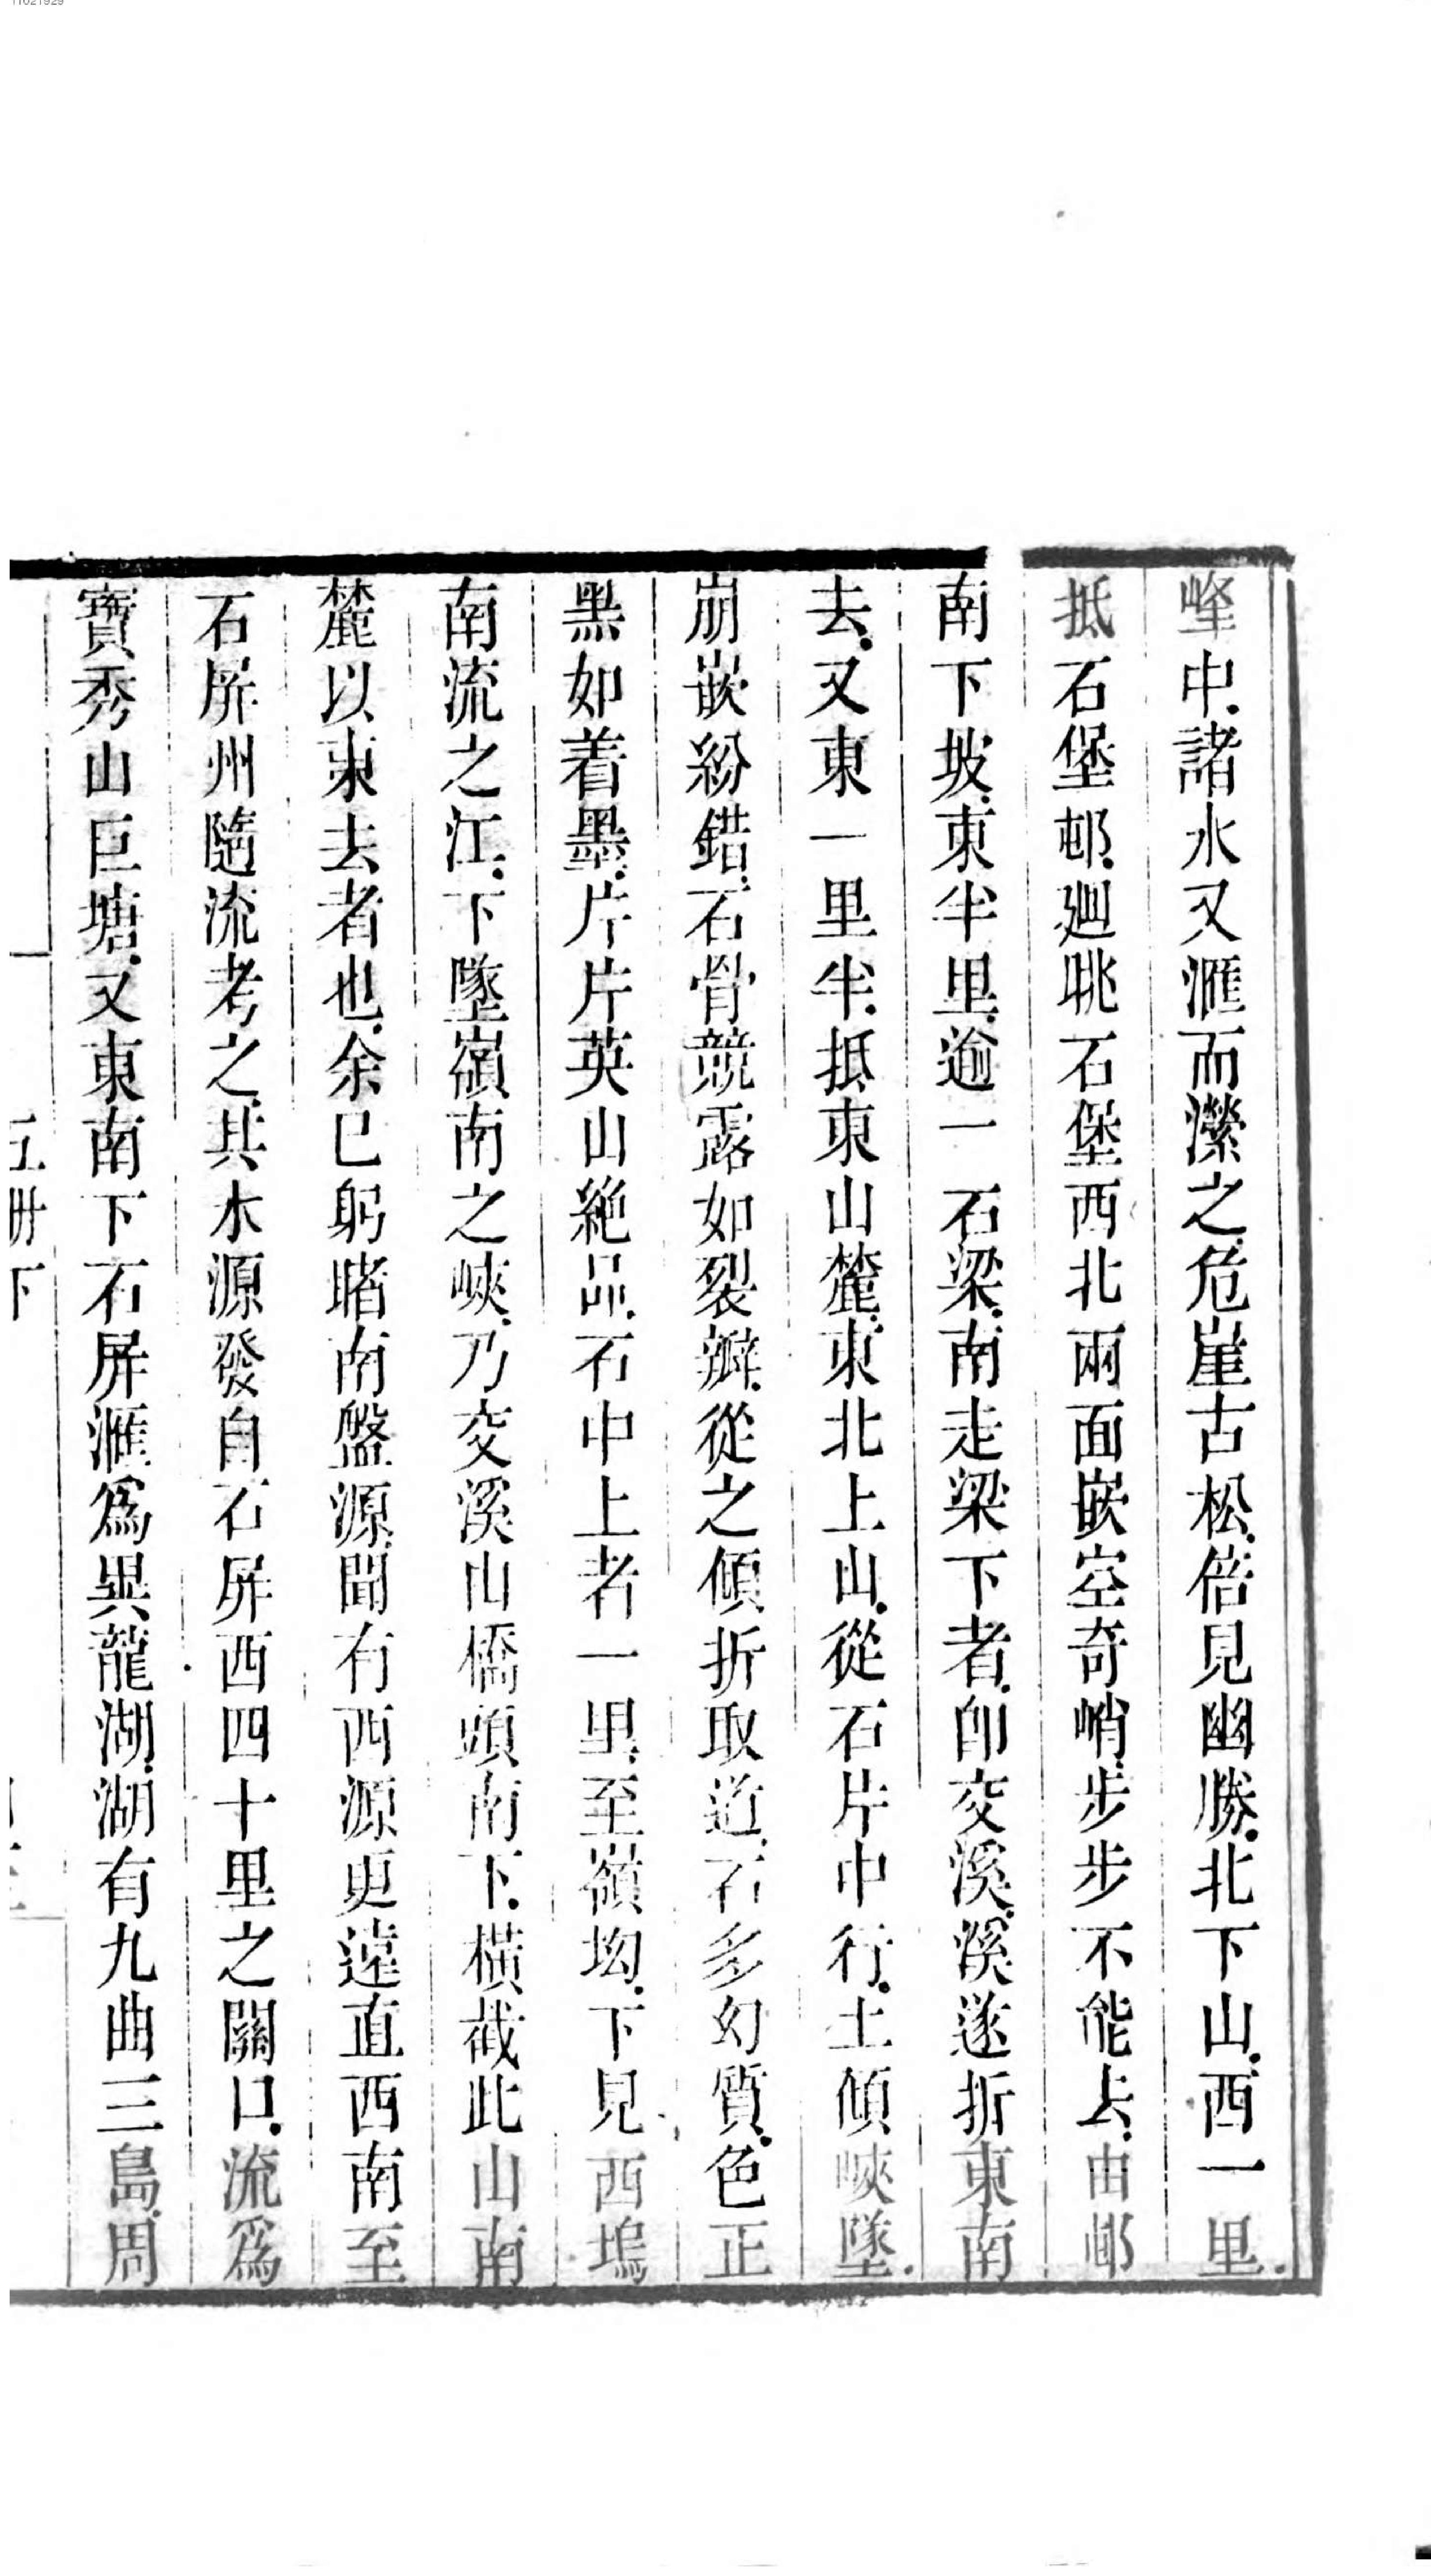 峰中諸水又滙而瀠之危崖古松倍見幽勝北下山西一里
抵石堡邨廻眺石堡西北兩面嵌空奇峭步步不能去由邨
南下坡東半里逾一石梁南走梁下者卽交溪溪遂折東南
去又東一里半抵東山麓東北上山從石片中行土傾峽墜
崩嵌紛錯石骨競露如裂瓣從之傾折取道石多幻質色正
黑如着墨片片英山絶品石中上者一里至嶺坳下見西塢
南流之江下墜嶺南之峽乃交溪山橋頭南下橫截此山南
麓以東去者也余已躬睹南盤源聞有西源更遠直西南至
石屏州隨流考之其水源發自石屏西四十里之關口流爲
寶秀山巨塘又東南下石屏滙爲異龍湖湖有九曲三島周
五册下
11021929